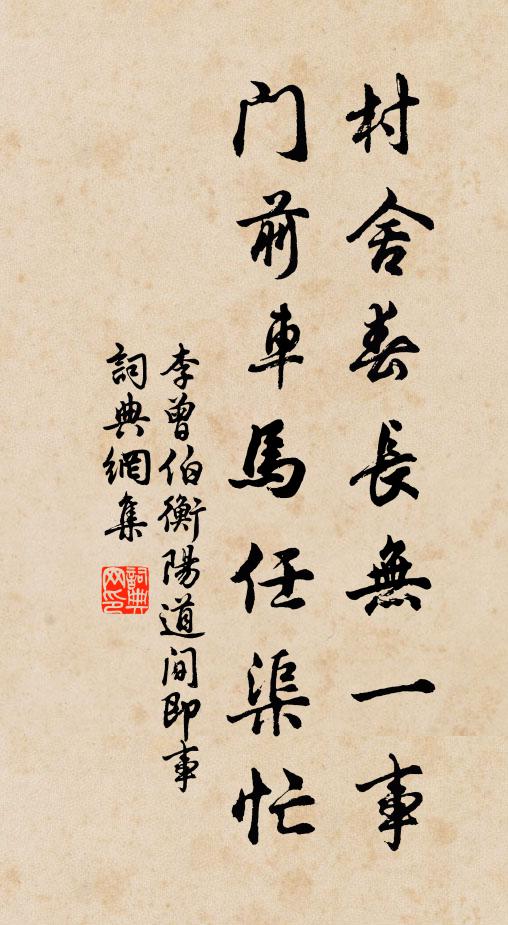 村舍春長無一事
門前車馬任渠忙
李曾伯衡陽道間即事
詞典網集
詞典網印